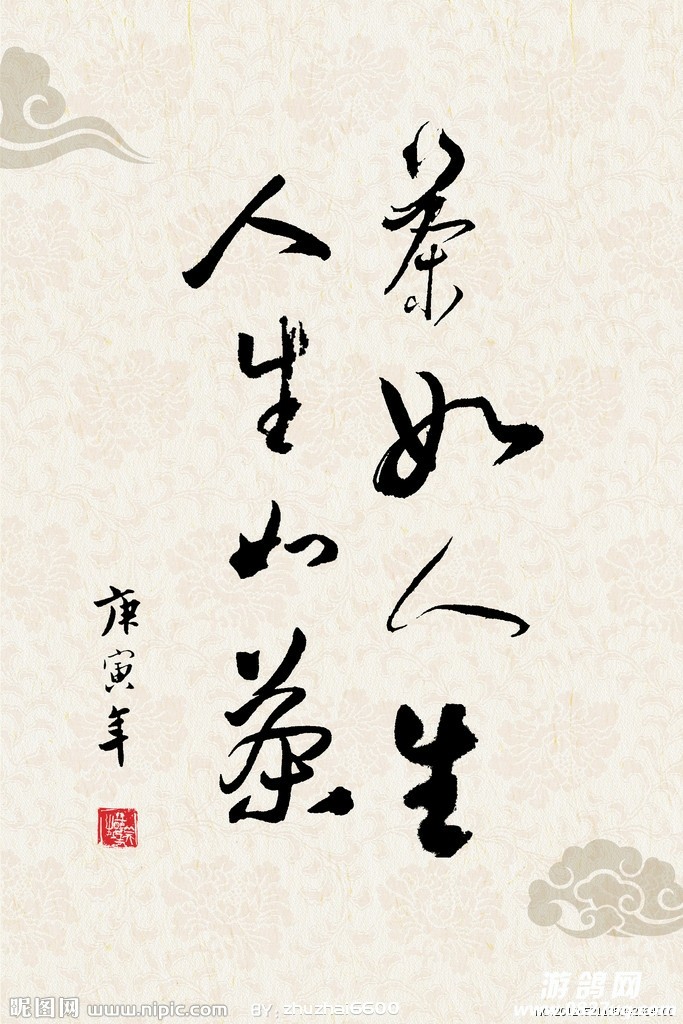 茶如人生
人生如茶
庚寅年
游鸽网
昵图网 www.nipic.com BY: zhuzhai6600